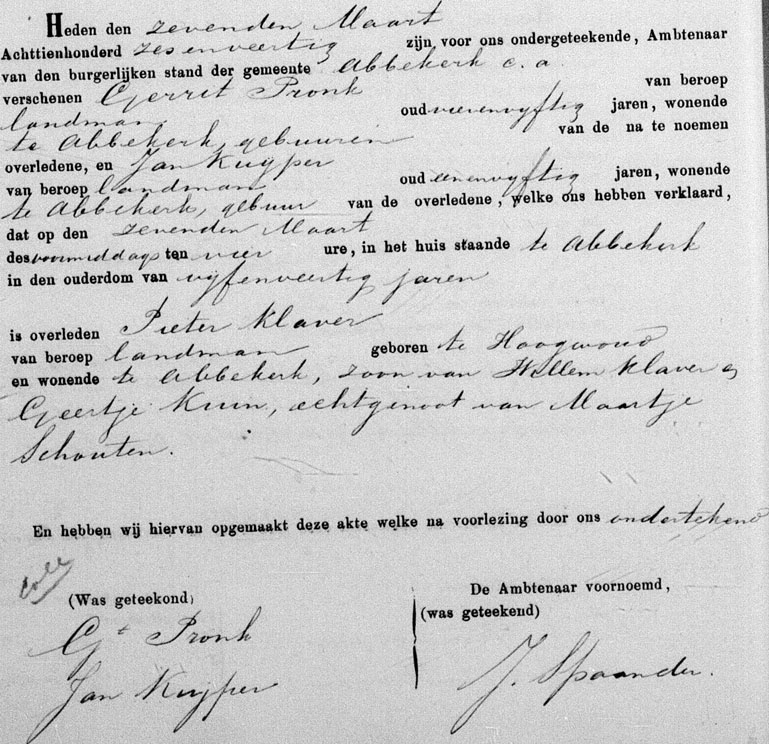 Heden den zevenden Maart
Achttienhonderd zesenveertig zijn voor ons ondergeteekende, Ambtenaar
van den burgerlijken stand der gemeente Abbekerk c. a.
verschenen Gerrit Pronk van beroep
landman oud vierenvyftig jaren, wonende
te Abbekerk, gebuuren van de na te noemen
overledene, en Jan Kuyper
van beroep landman oud eenenvyftig jaren, wonende
te Abbekerk, gebuur van de overledene, welke ons hebben verklaard,
dat op den zevenden Maart
des voormiddags ten vier ure, in het huis staande te Abbekerk
in den ouderdom van vyfenveertig jaren
is overleden Pieter Klaver
van beroep landman geboren te Hoogwoud
en wonende te Abbekerk, zoon van Willem Klaver en
Geertje Kuin, echtgenoot van Maartje
Schouten.
En hebben wij hiervan opgemaakt deze akte welke na voorlezing door ons ondertekend
coll
De Ambtenaar voornoemd,
(Was geteekend) (was geteekend)
Gt Pronk
Jan Kuyper J. Spaander.